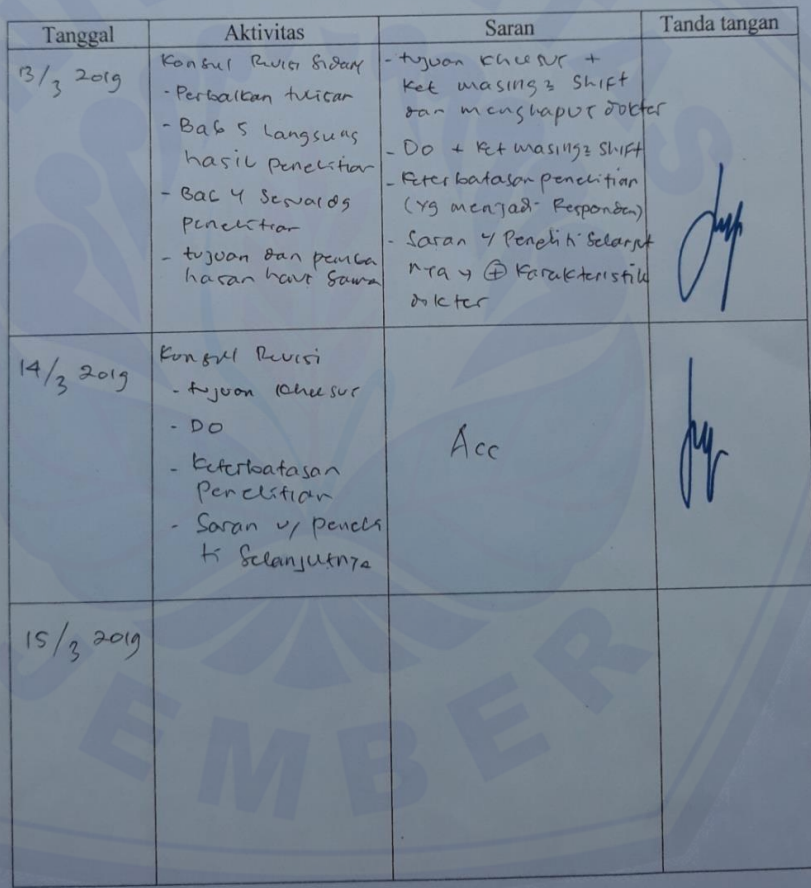 Tanggal
Aktivitas
Saran
Tanda tangan
13/3 2019
Konsul Revisi Sidang
- Perbaikan tulisan
- Bab 5 Langsung
hasil penelitian
- Bab 4 Sesuai dg
penelitian
- tujuan dan pemba
hasan harus sama
- tujuan khusus +
Ket masing2 Shift
dan menghapus dokter
- DO + Ket masing2 Shift
- Keterbatasan penelitian
(yg menjadi Responden)
- Saran u/ Peneliti Selanjut
nya → ⊕ Karakteristik
dokter
14/3 2019
Konsul Revisi
- tujuan khusus
- DO
- Keterbatasan
Penelitian
- Saran u/ peneli
ti Selanjutnya
Acc
15/3 2019
JEMBER